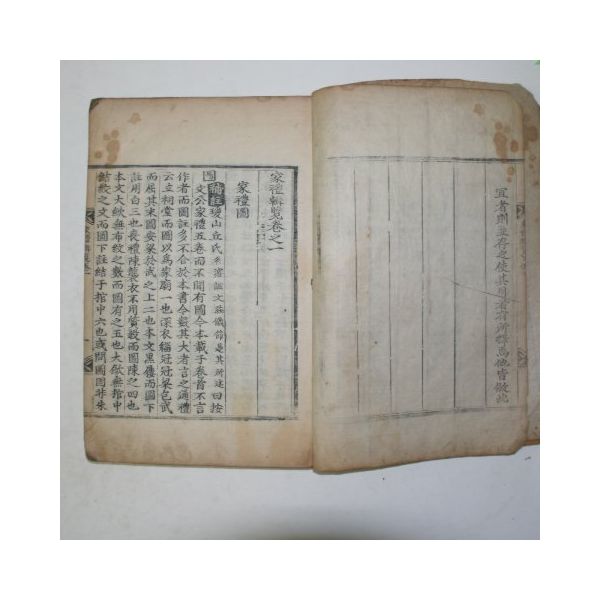 宜者則並存之使其用者有所擇焉他皆倣此
家禮輯覽卷之一
家禮圖
圖 補註 瓊山丘氏 曰按
文公家禮五卷而不聞有圖今本載于卷首不言
作者而圖註多不合於本書今數其大者言之通禮
云立祠堂而圖以爲家廟一也深衣緇冠冠梁包武
而屈其末圖安梁於武之上二也本文黑履而圖下
註用白三也喪禮陳襲衣不用質殺而圖陳之四也
本文大斂無布絞之數而圖有之五也大斂無棺中
結絞之文而圖下註結于棺中六也或問圖固非朱